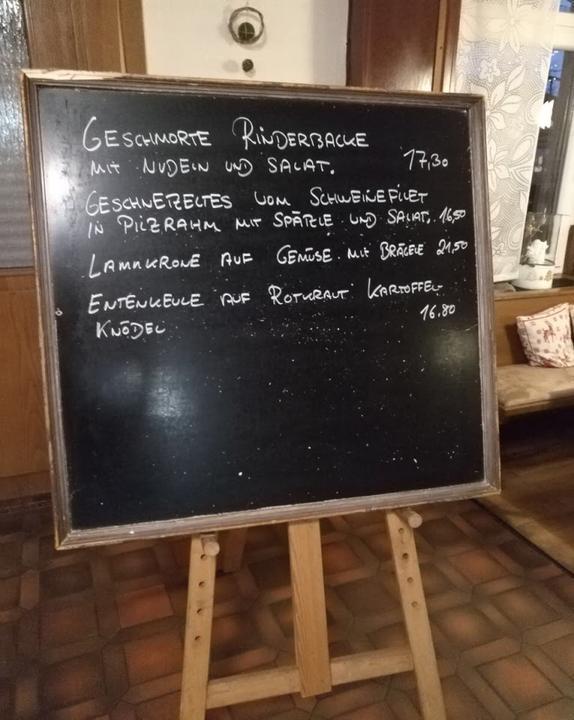 GESCHMORTE RINDERBACKE
MIT NUDELN UND SALAT. 17,30
GESCHNETZELTES VOM SCHWEINEFILET
IN PILZRAHM MIT SPÄTZLE UND SALAT. 16,50
LAMMKRONE AUF GEMÜSE MIT BRÄGELE 21,50
ENTENKEULE AUF ROTKRAUT KARTOFFEL-
KNÖDEL 16.80